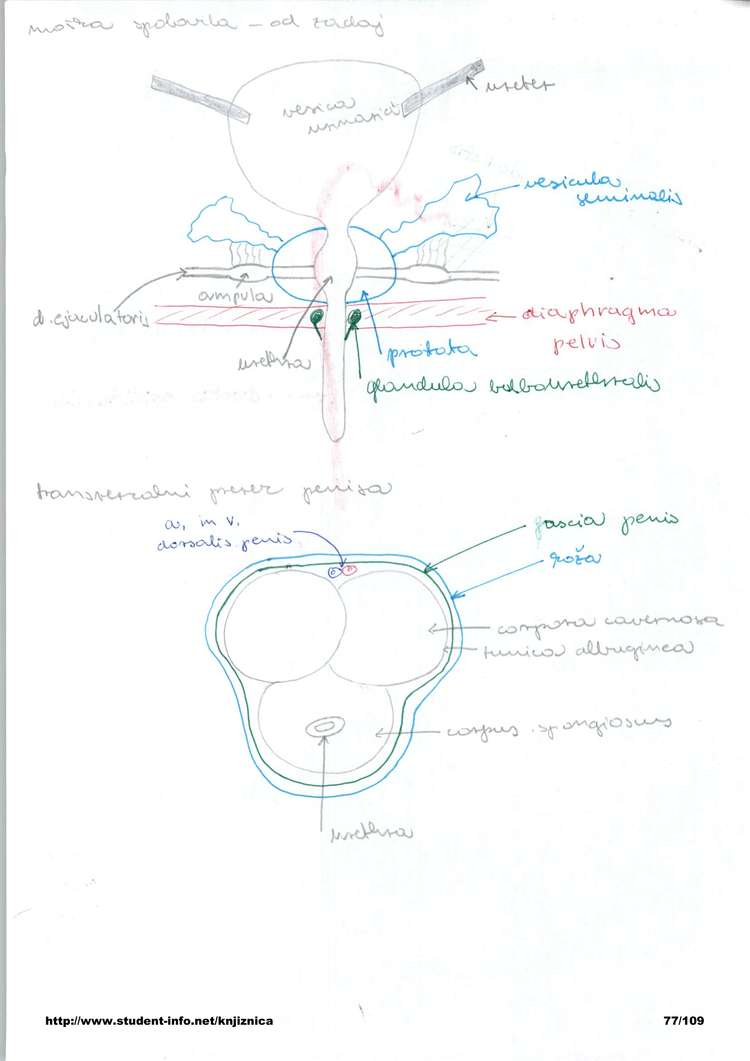 moška spolovila - od zadaj
ureter
vesica
urinaria
vesicula
seminalis
ampula
d. ejaculatoris
diaphragma
pelvis
urethra
prostata
glandula bulbourethralis
transverzalni prerez penisa
a. in v.
dorsalis penis
fascia penis
koža
corpora cavernosa
tunica albuginea
corpus spongiosus
urethra
http://www.student-info.net/knjiznica
77/109